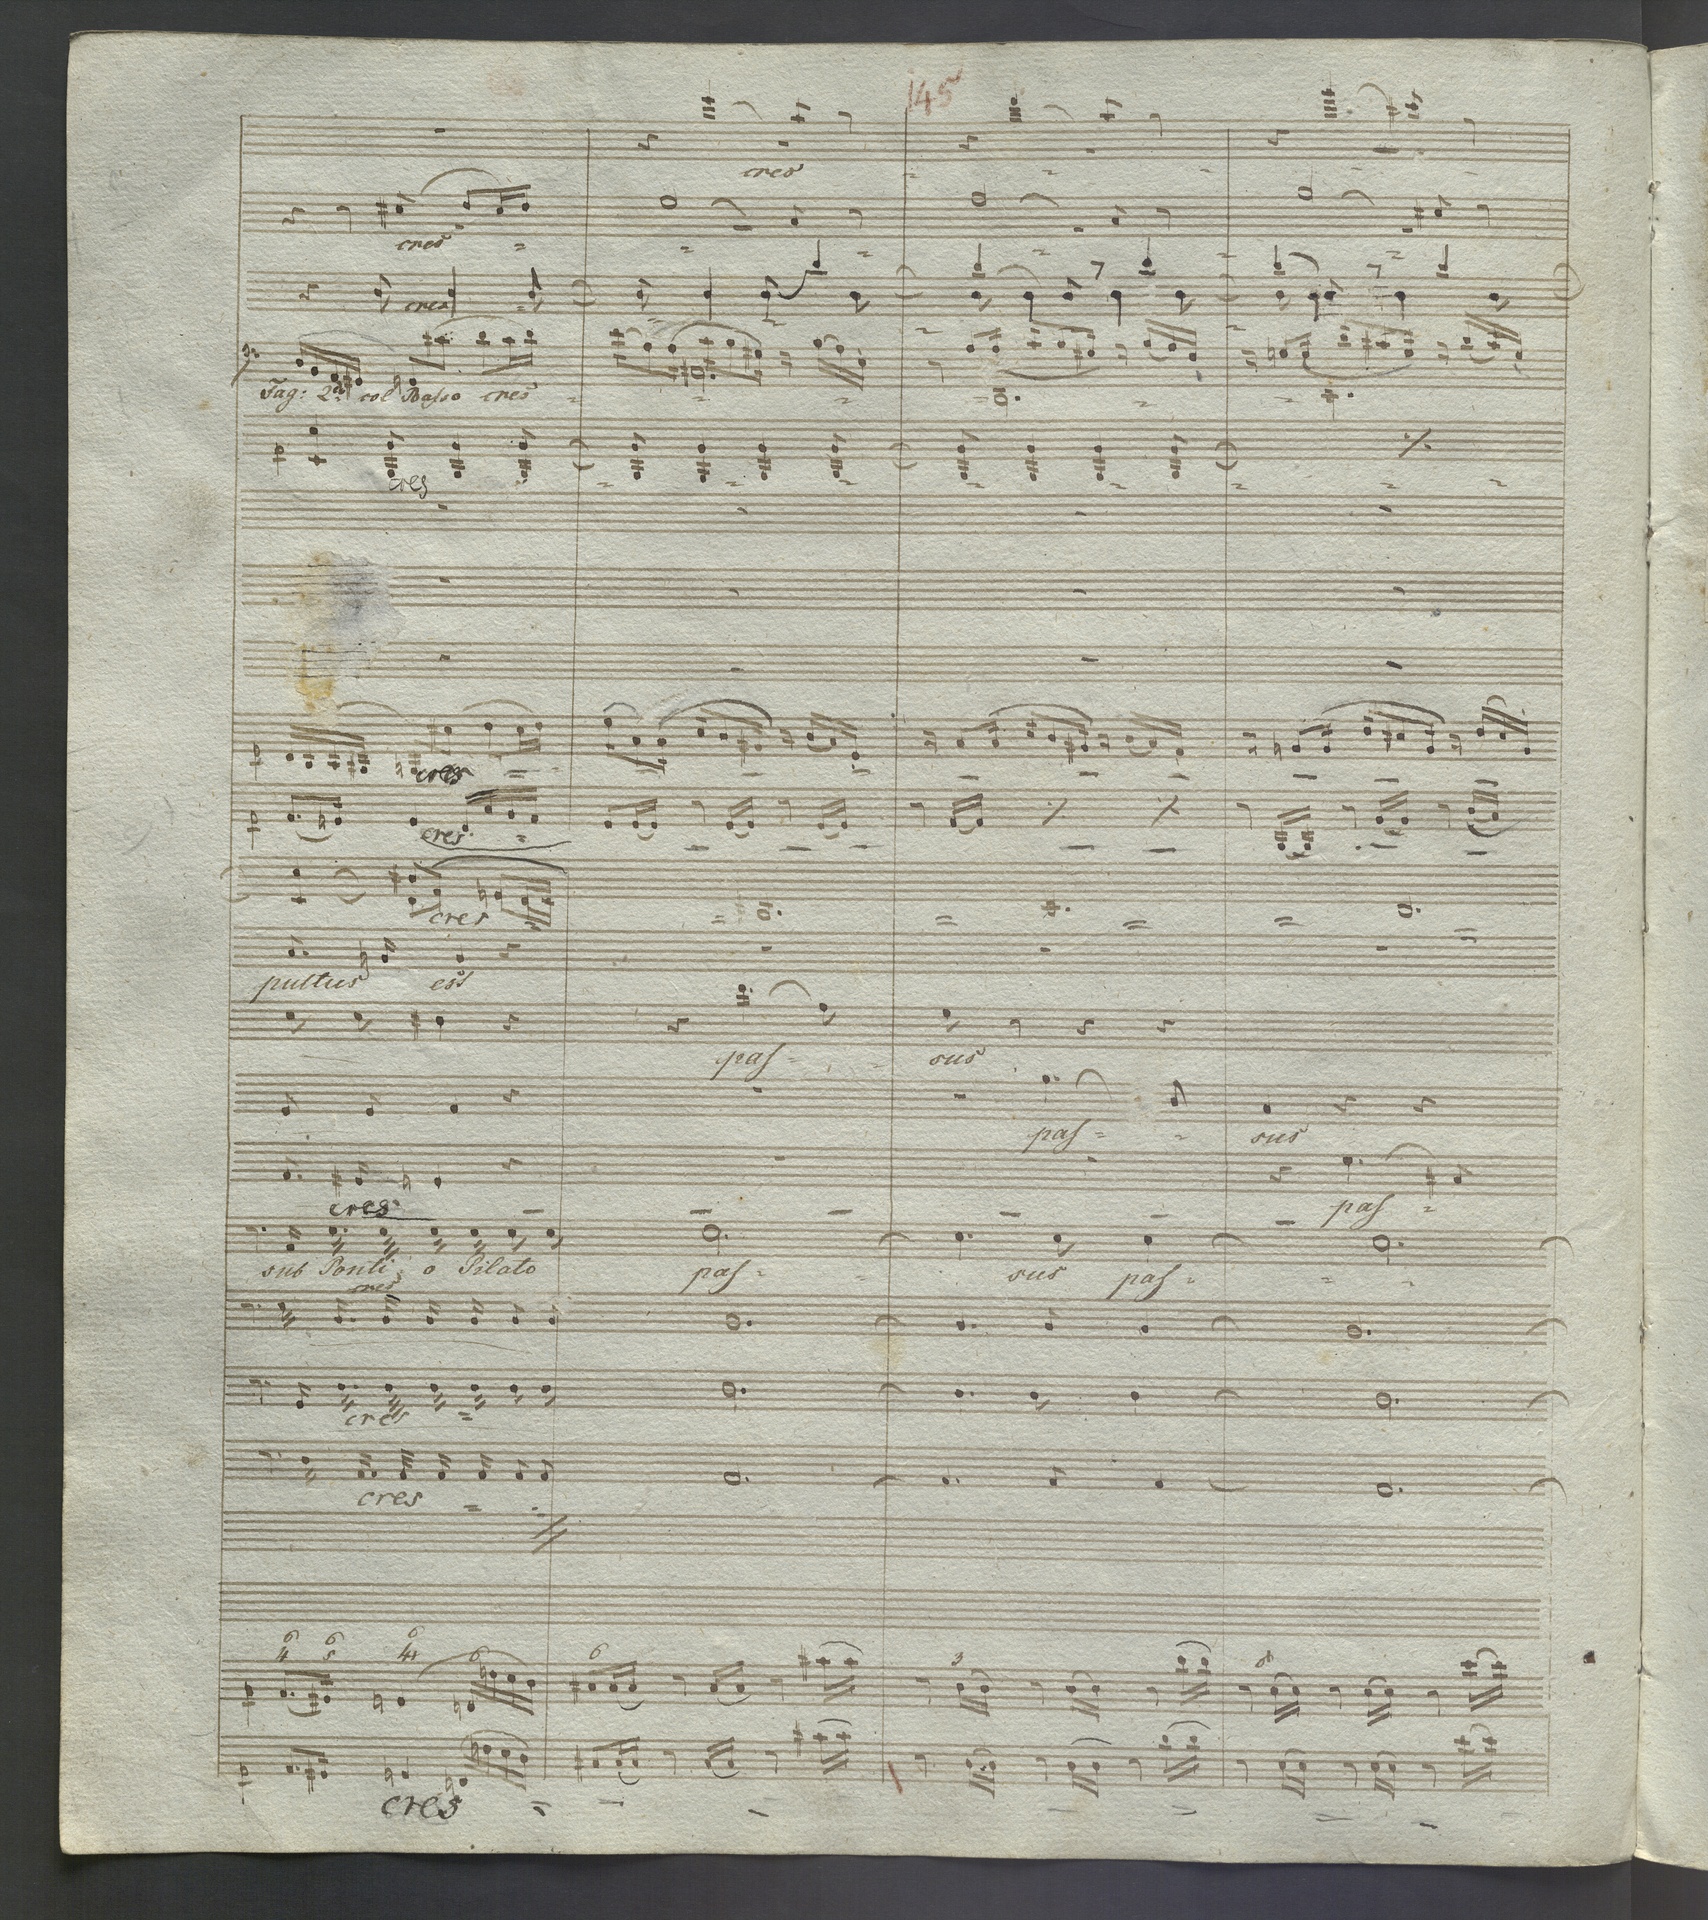 145
cres
cres
cres
Fag: 2do col Basso cres
cres
cres
cres
cres
pultus est
pas- sus
pas- sus
cres
pas-
sub Ponti o Pilato pas- sus pas-
cres
cres
cres
6 6 6
4 5 4+ 6 6 3 6
cres